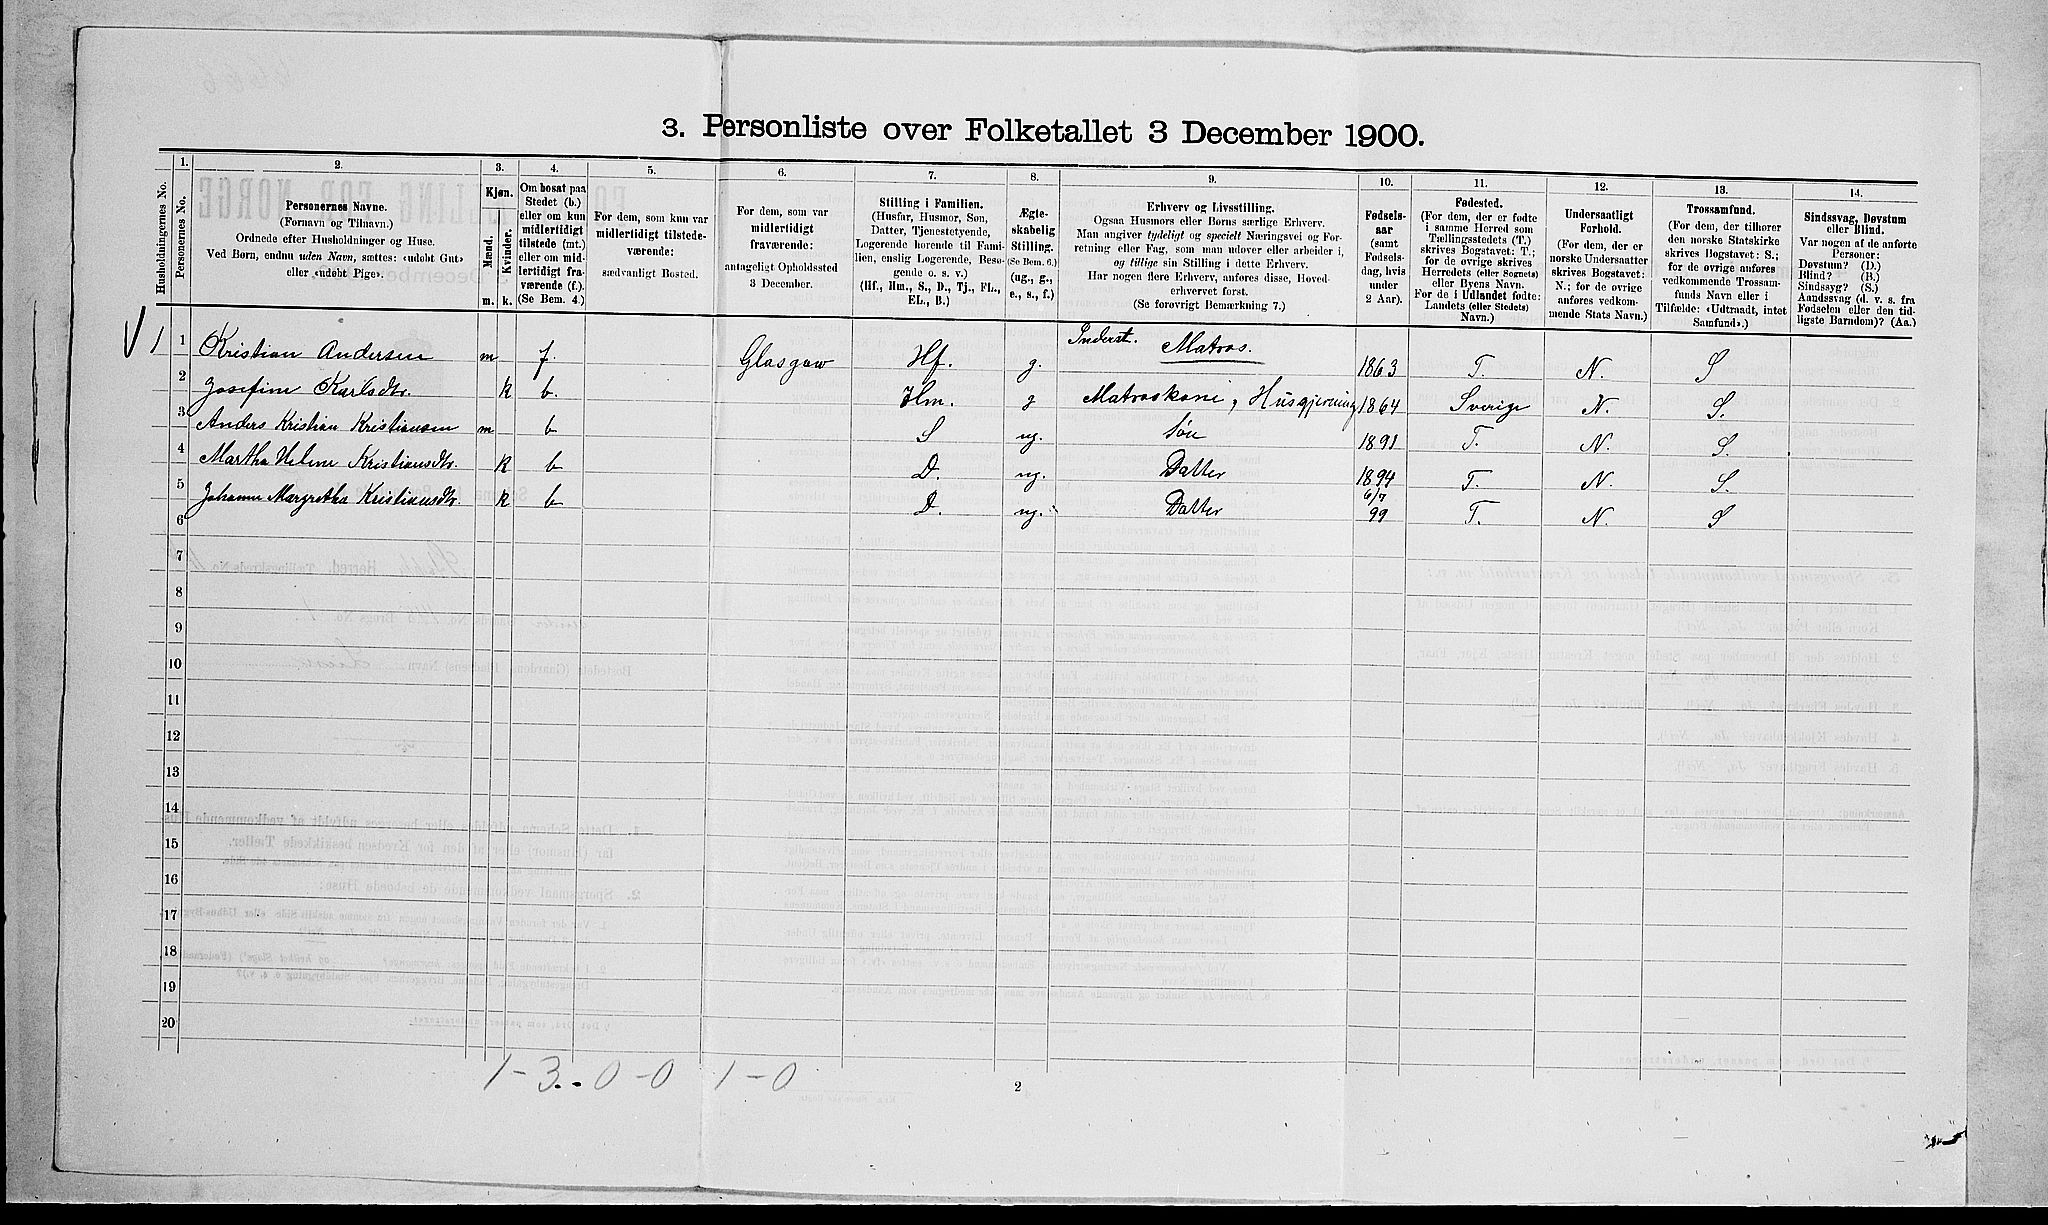 3. Personliste over Folketallet 3 December 1900.
Husholdningernes No.
1.
Personernes No.
2.
Personernes Navne.
(Fornavn og Tilnavn.)
Ordnede efter Husholdninger og Huse.
Ved Børn, endnu uden Navn, sættes: «udøbt Gut»
eller «udøbt Pige».
3.
Kjøn.
Mænd.
Kvinder.
m. k.
4.
Om bosat paa
Stedet (b.)
eller om kun
midlertidigt
tilstede (mt.)
eller om mid-
lertidigt fra-
værende (f.).
(Se Bem. 4.)
5.
For dem, som kun var
midlertidigt tilstede-
værende:
sædvanligt Bosted.
6.
For dem, som var
midlertidigt
fraværende:
antageligt Opholdssted
3 December.
7.
Stilling i Familien.
(Husfar, Husmor, Søn,
Datter, Tjenestetyende,
Logerende hørende til Fami-
lien, enslig Logerende, Besø-
gende o. s. v.)
(Hf., Hm., S., D., Tj., FL.,
EL., B.)
8.
Ægte-
skabelig
Stilling.
(Se Bem. 6.)
(ug., g.,
e., s., f.)
9.
Erhverv og Livsstilling.
Ogsaa Husmors eller Børns særlige Erhverv.
Man angiver tydeligt og specielt Næringsvei og For-
retning eller Fag, som man udøver eller arbeider i,
og tillige sin Stilling i dette Erhverv.
Har nogen flere Erhverv, anføres disse, Hoved-
erhvervet først.
(Se forøvrigt Bemærkning 7.)
10.
Fødsels-
aar
(samt
Fødsels-
dag, hvis
under
2 Aar).
11.
Fødested.
(For dem, der er fødte
i samme Herred som
Tællingsstedets (T.)
skrives Bogstavet: T.;
for de øvrige skrives
Herredets (eller Sognets)
eller Byens Navn.
For de i Udlandet fødte:
Landets (eller Stedets)
Navn.)
12.
Undersaatligt
Forhold.
(For dem, der er
norske Undersaatter
skrives Bogstavet:
N.; for de øvrige
anføres vedkom-
mende Stats Navn.)
13.
Trossamfund.
(For dem, der tilhører
den norske Statskirke
skrives Bogstavet: S.;
for de øvrige anføres
vedkommende Trossam-
funds Navn eller i
Tilfælde: «Udtraadt, intet
Samfund».)
14.
Sindssvag, Døvstum
eller Blind.
Var nogen af de anførte
Personer:
Døvstum? (D.)
Blind? (B.)
Sindssyg? (S.)
Aandssvag (d. v. s. fra
Fødselen eller den tid-
ligste Barndom)? (Aa.)
1 1 Kristian Andersen m f. Glasgow Hf. g. Inderst. Matros. 1863 T. N. S
2 Josefine Karlsdtr. k b. Hm. g Matroskone, Husgjerning 1864 Sverige N. S.
3 Anders Kristian Kristiansen m b S ug. Søn 1891 T. N. S.
4 Martha Helene Kristiansdtr. k b D. ug. Datter 1894 T. N. S.
5 Johanne Margretha Kristiansdtr. k b D. ug. Datter 6/7 99 T. N. S
6
7
8
9
10
11
12
13
14
15
16
17
18
19
20
1-3.-0-0 1-0
2